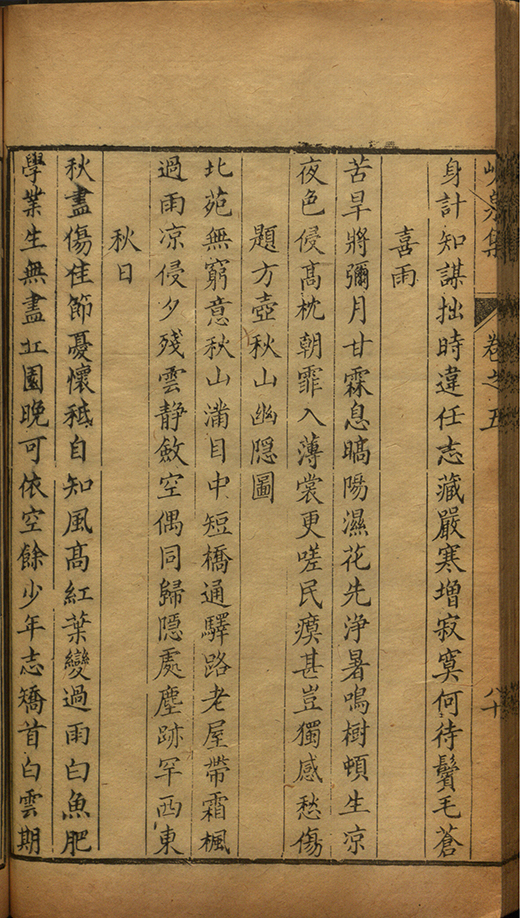 峴泉集 卷之五 八十
身計知謀拙時違任志藏嚴寒增寂寞何待鬢毛蒼
喜雨
苦旱將彌月甘霖息暠陽濕花先浄暑鳴樹頓生凉
夜色侵髙枕朝霏入薄裳更嗟民瘼甚豈獨感愁傷
題方壺秋山幽隠圖
北苑無窮意秋山滿目中短橋通驛路老屋帶霜楓
過雨凉侵夕殘雲静斂空偶同歸隠處塵跡罕西東
秋日
秋盡傷佳節憂懷秪自知風髙紅葉變過雨白魚肥
學業生無盡丘園晚可依空餘少年志矯首白雲期